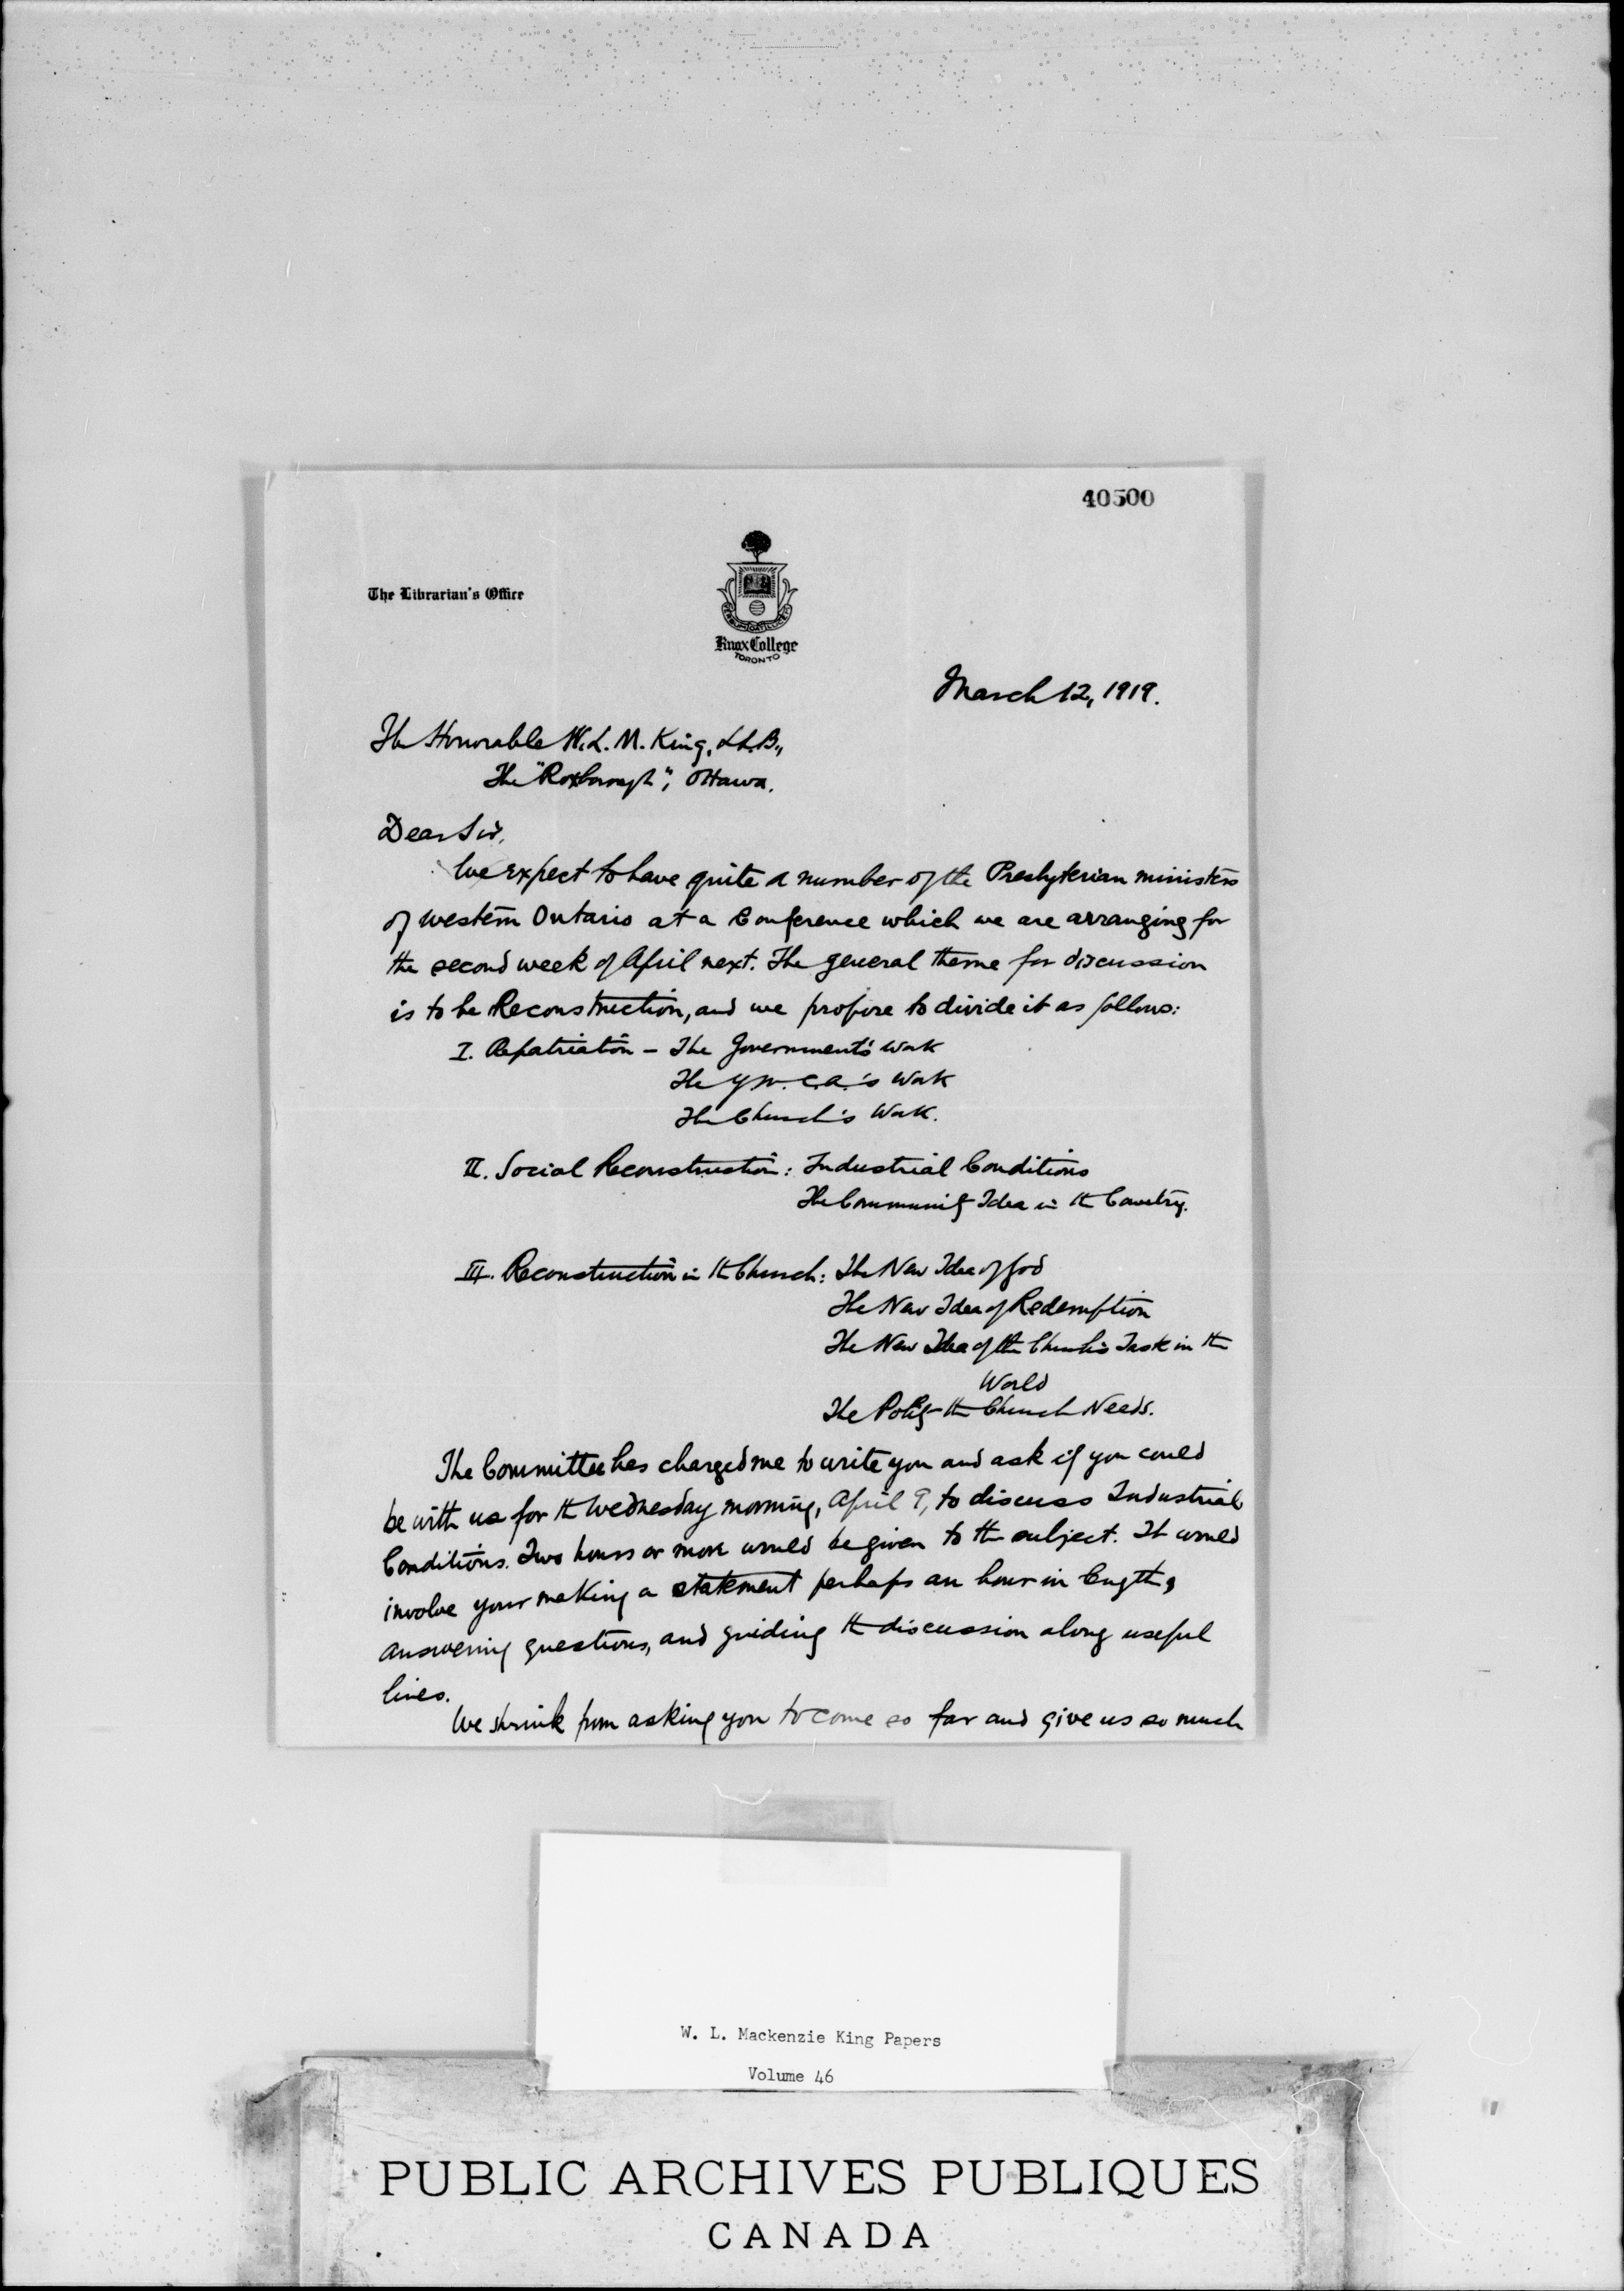 40500
The Librarian's Office
Knox College
TORONTO
March 12, 1919.
The Honorable W. L. M. King, LL.B.,
The "Roxborough", Ottawa.
Dear Sir,
We expect to have quite a number of the Presbyterian ministers
of western Ontario at a Conference which we are arranging for
the second week of April next. The general theme for discussion
is to be Reconstruction, and we propose to divide it as follows:
I. Repatriation – The Government's Work
The Y.M.C.A.'s Work
The Church's Work.
II. Social Reconstruction: Industrial Conditions
The Community Idea in the Country.
III. Reconstruction in the Church: The New Idea of God
The New Idea of Redemption
The New Idea of the Church's Task in the
World
The Polity the Church Needs.
The Committee has charged me to write you and ask if you could
be with us for the Wednesday morning, April 9, to discuss Industrial
Conditions. Two hours or more would be given to the subject. It would
involve your making a statement perhaps an hour in length,
answering questions, and guiding the discussion along useful
lines.
We shrink from asking you to come so far and give us so much
W. L. Mackenzie King Papers
Volume 46
PUBLIC ARCHIVES PUBLIQUES
CANADA